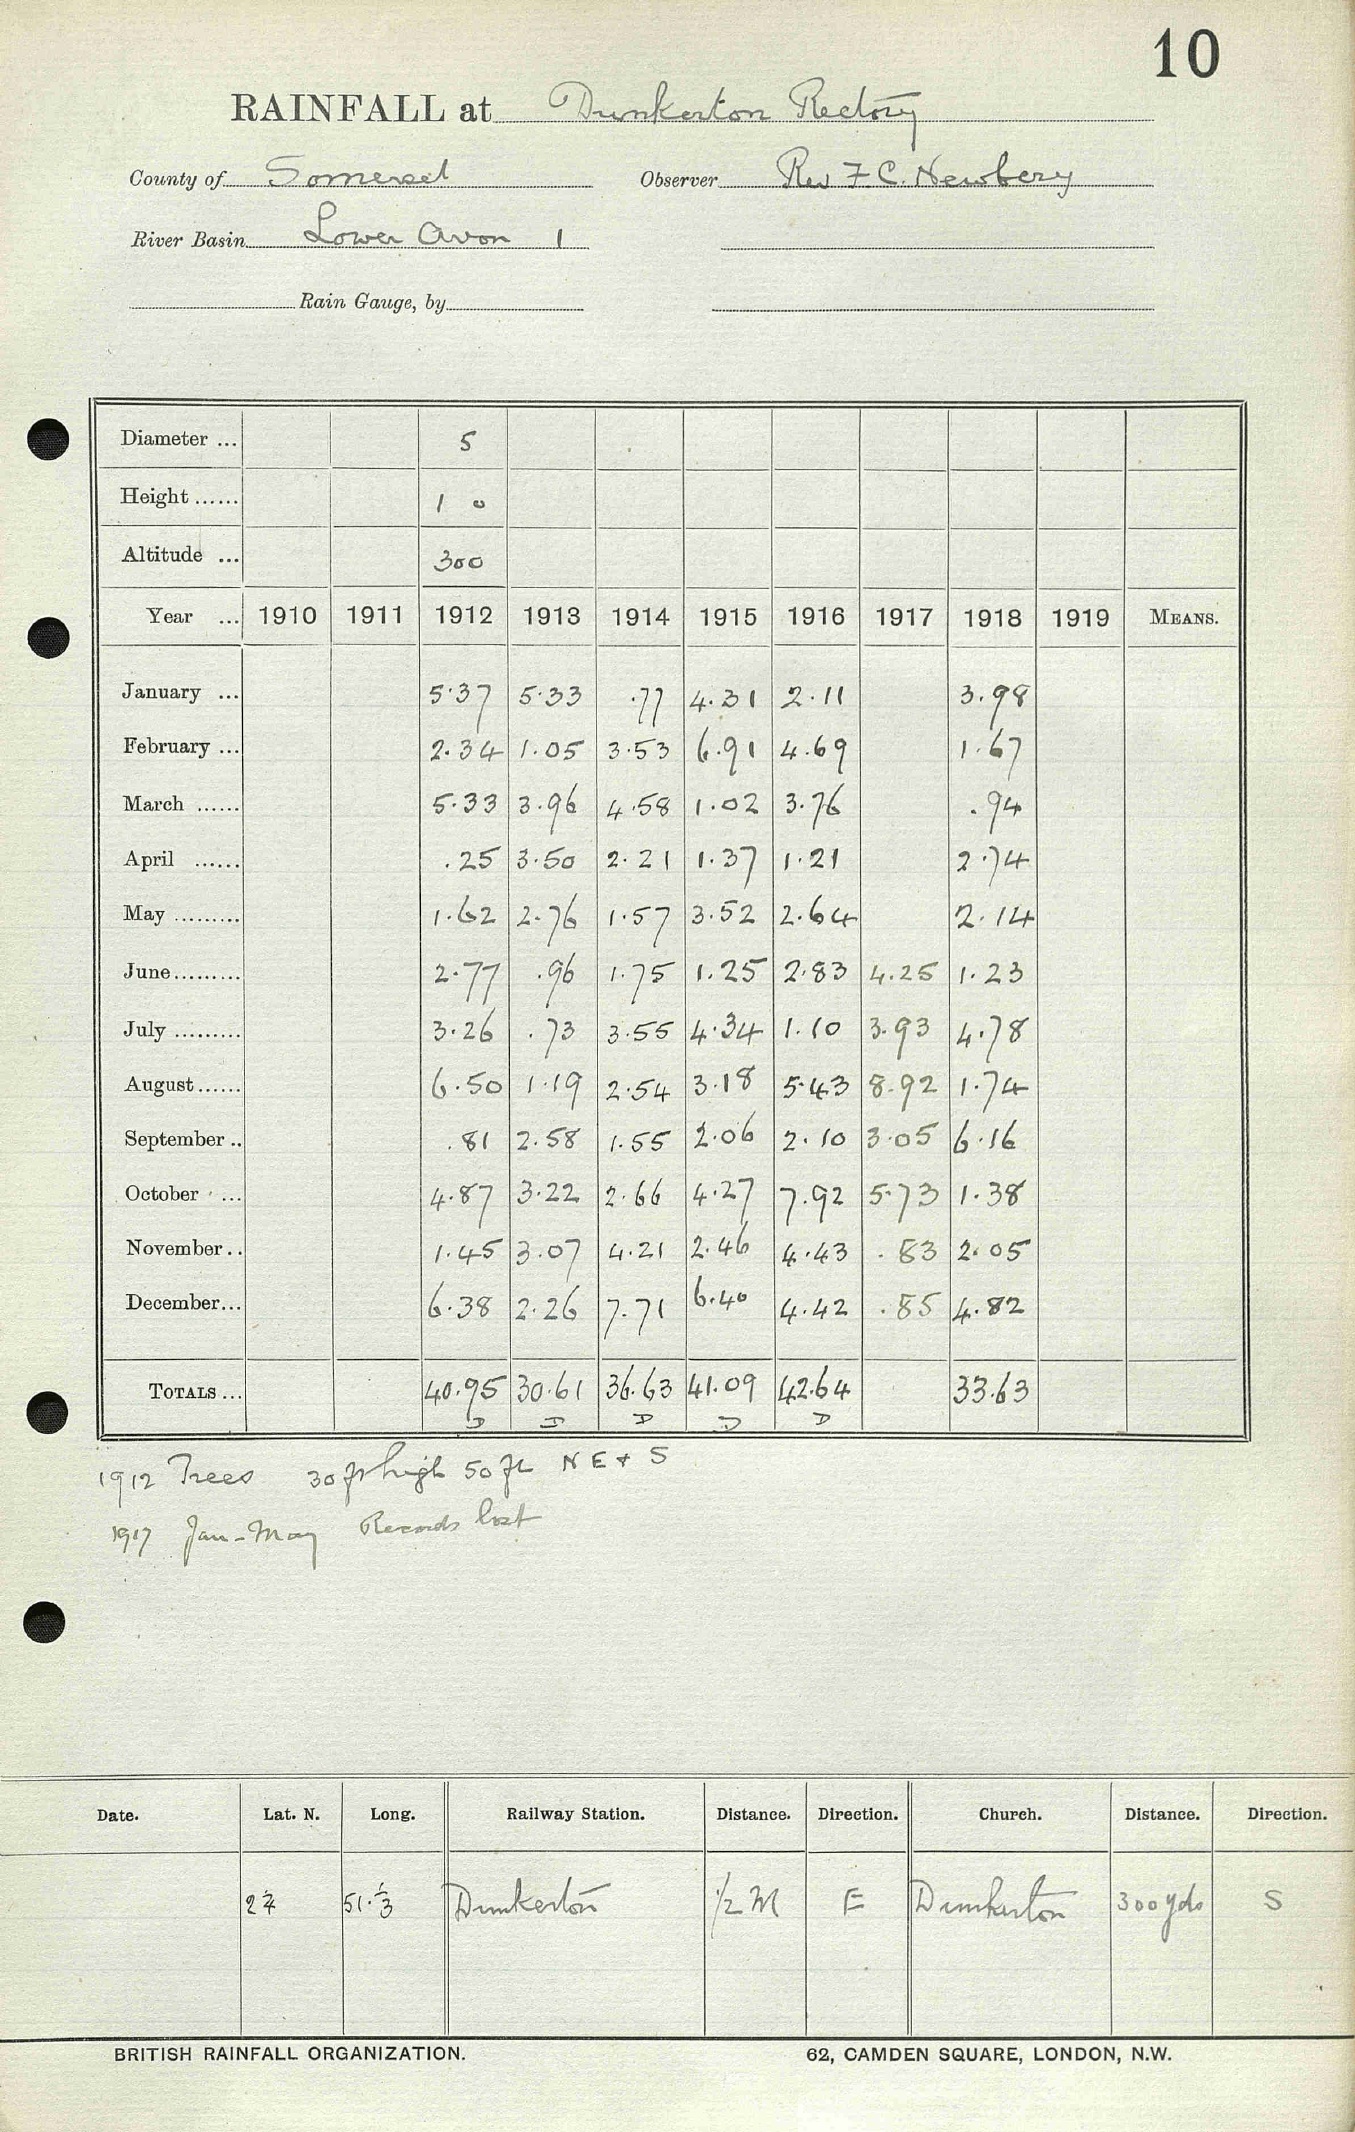 10
RAINFALL at Dunkerton Rectory
County of Somerset Observer Rev F C. Newbery
River Basin Lower Avon 1
Rain Gauge, by
Diameter ... 5
Height ...... 1 0
Altitude ... 300
Year ... 1910 1911 1912 1913 1914 1915 1916 1917 1918 1919 MEANS.
January ... 5.37 5.33 .77 4.31 2.11 3.98
February ... 2.34 1.05 3.53 6.91 4.69 1.67
March ...... 5.33 3.96 4.58 1.02 3.76 .94
April ...... .25 3.50 2.21 1.37 1.21 2.74
May ......... 1.62 2.76 1.57 3.52 2.64 2.14
June ......... 2.77 .96 1.75 1.25 2.83 4.25 1.23
July ......... 3.26 .73 3.55 4.34 1.10 3.93 4.78
August ...... 6.50 1.19 2.54 3.18 5.43 8.92 1.74
September .. .81 2.58 1.55 2.06 2.10 3.05 6.16
October ... 4.87 3.22 2.66 4.27 7.92 5.73 1.38
November .. 1.45 3.07 4.21 2.46 4.43 .83 2.05
December ... 6.38 2.26 7.71 6.40 4.42 .85 4.82
TOTALS ... 40.95 30.61 36.63 41.09 42.64 33.63
D D D D D
1912 Trees 30 ft high 50 ft N E + S
1917 Jan - May Records lost
Date. Lat. N. Long. Railway Station. Distance. Direction. Church. Distance. Direction.
51.⅓ Dunkerton 1/2 M E Dunkerton 300 yds S
BRITISH RAINFALL ORGANIZATION. 62, CAMDEN SQUARE, LONDON, N.W.